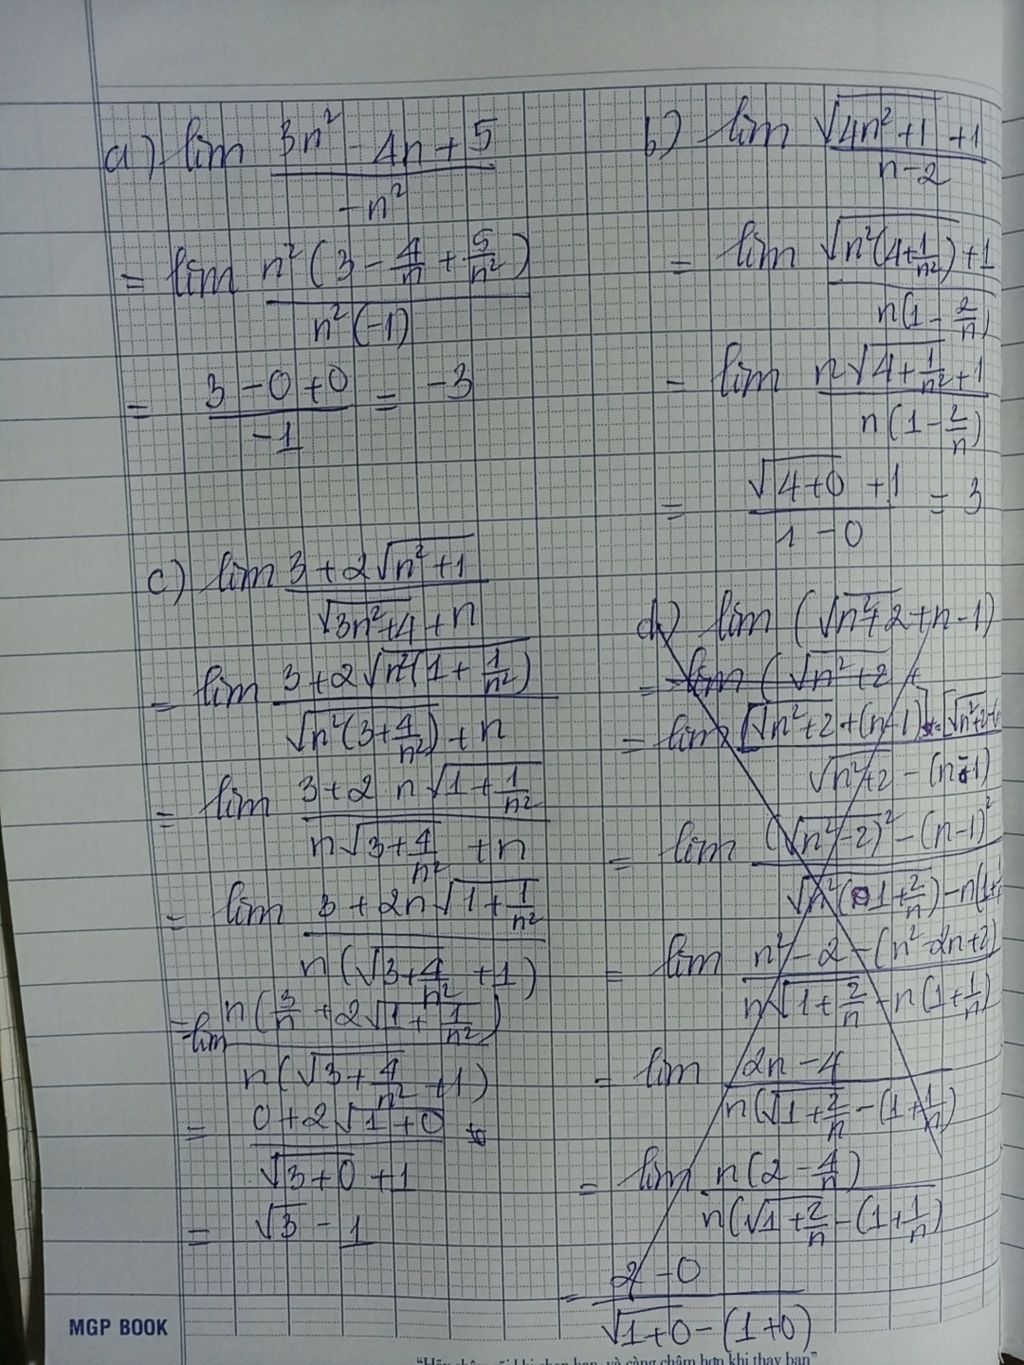 a) lim (3n² - 4n + 5)/(-n²)
= lim (n²(3 - 4/n + 5/n²))/(n²(-1))
= (3 - 0 + 0)/(-1) = -3
b) lim (√(4n²+1) + 1)/(n-2)
= lim (√(n²(4+1/n²)) + 1)/(n(1 - 2/n))
= lim (n√(4+1/n²) + 1)/(n(1 - 2/n))
= (√(4+0) + 1)/(1 - 0) = 3
c) lim (3 + 2√(n²+1))/(√(3n²+4) + n)
= lim (3 + 2√(n²(1 + 1/n²)))/(√(n²(3+4/n²)) + n)
= lim (3 + 2 n√(1 + 1/n²))/(n√(3+4/n²) + n)
= lim (3 + 2n√(1 + 1/n²))/(n(√(3+4/n²) + 1))
= lim (n(3/n + 2√(1 + 1/n²)))/(n(√(3+4/n²) + 1))
= (0 + 2√(1+0))/(√(3+0) + 1)
= √3 - 1
d) lim (√(n²+2) + n - 1)
= lim (√(n²+2) +
= lim [√(n²+2) + (n-1)] . [√(n²+2) - (
√(n²+2) - (n-1)
= lim (√(n²-2)² - (n-1)²
√(n²(1+2/n)) - n(1+
= lim (n² - 2 - (n² - 2n + 2))/(n√(1+2/n) - n(1+1/n))
= lim (2n - 4)/(n(√(1+2/n) - (1+1/n))
= lim (n(2 - 4/n))/(n(√(1+2/n) - (1+1/n))
= (2 - 0)/(√(1+0) - (1+0))
MGP BOOK